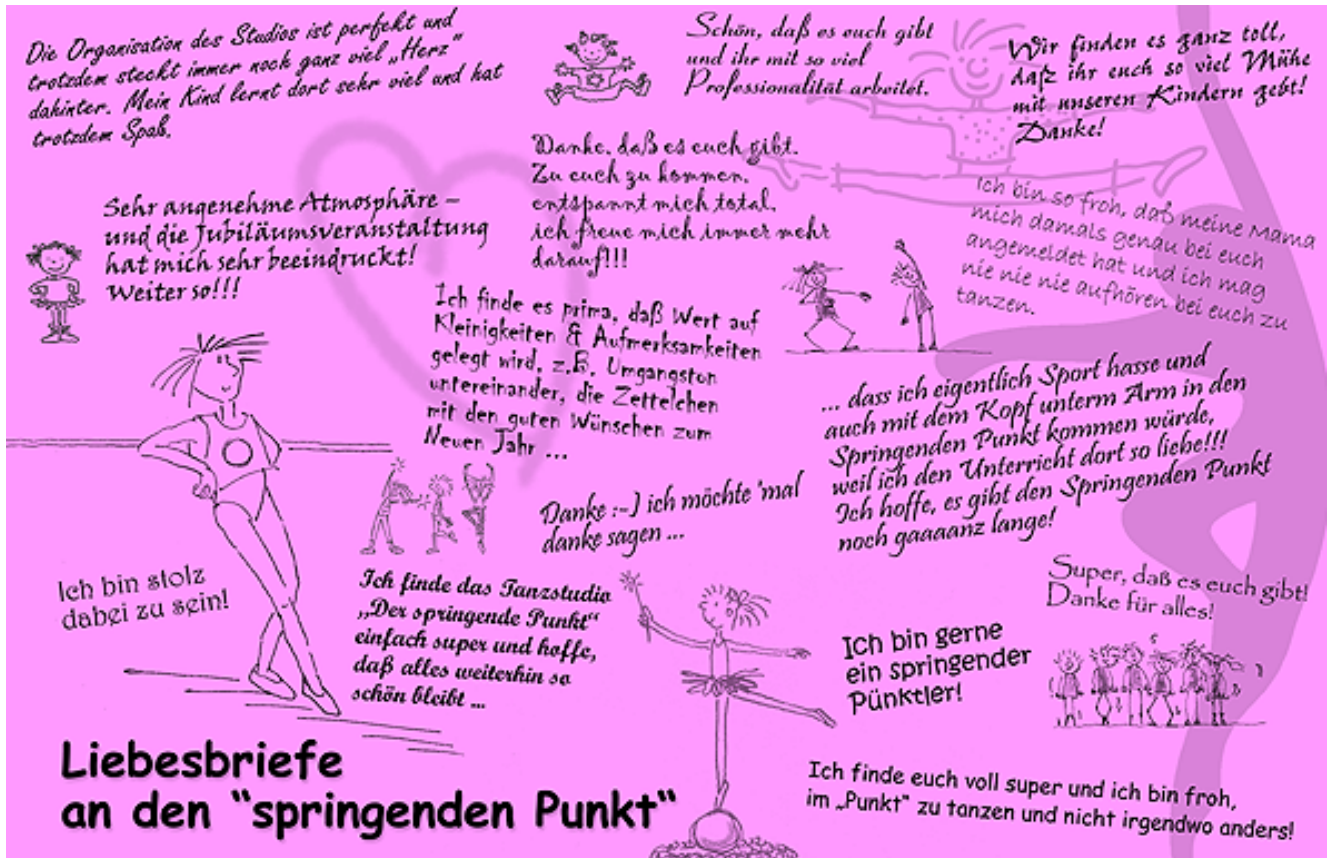 Die Organisation des Studios ist perfekt und
trotzdem steckt immer noch ganz viel „Herz“
dahinter. Mein Kind lernt dort sehr viel und hat
trotzdem Spaß.
Schön, daß es euch gibt
und ihr mit so viel
Professionalität arbeitet.
Wir finden es ganz toll,
daß ihr euch so viel Mühe
mit unseren Kindern gebt!
Danke!
Danke, daß es euch gibt.
Zu euch zu kommen,
entspannt mich total,
ich freue mich immer mehr
darauf!!!
Ich bin so froh, daß meine Mama
mich damals genau bei euch
angemeldet hat und ich mag
nie nie nie aufhören bei euch zu
tanzen.
Sehr angenehme Atmosphäre –
und die Jubiläumsveranstaltung
hat mich sehr beeindruckt!
Weiter so!!!
Ich finde es prima, daß Wert auf
Kleinigkeiten & Aufmerksamkeiten
gelegt wird, z.B. Umgangston
untereinander, die Zettelchen
mit den guten Wünschen zum
Neuen Jahr ...
... dass ich eigentlich Sport hasse und
auch mit dem Kopf unterm Arm in den
Springenden Punkt kommen würde,
weil ich den Unterricht dort so liebe!!!
Ich hoffe, es gibt den Springenden Punkt
noch gaaaanz lange!
Danke :-) ich möchte 'mal
danke sagen ...
Ich bin stolz
dabei zu sein!
Ich finde das Tanzstudio
„Der springende Punkt“
einfach super und hoffe,
daß alles weiterhin so
schön bleibt ...
Super, daß es euch gibt!
Danke für alles!
Ich bin gerne
ein springender
Pünktler!
Liebesbriefe
an den “springenden Punkt“
Ich finde euch voll super und ich bin froh,
im „Punkt“ zu tanzen und nicht irgendwo anders!